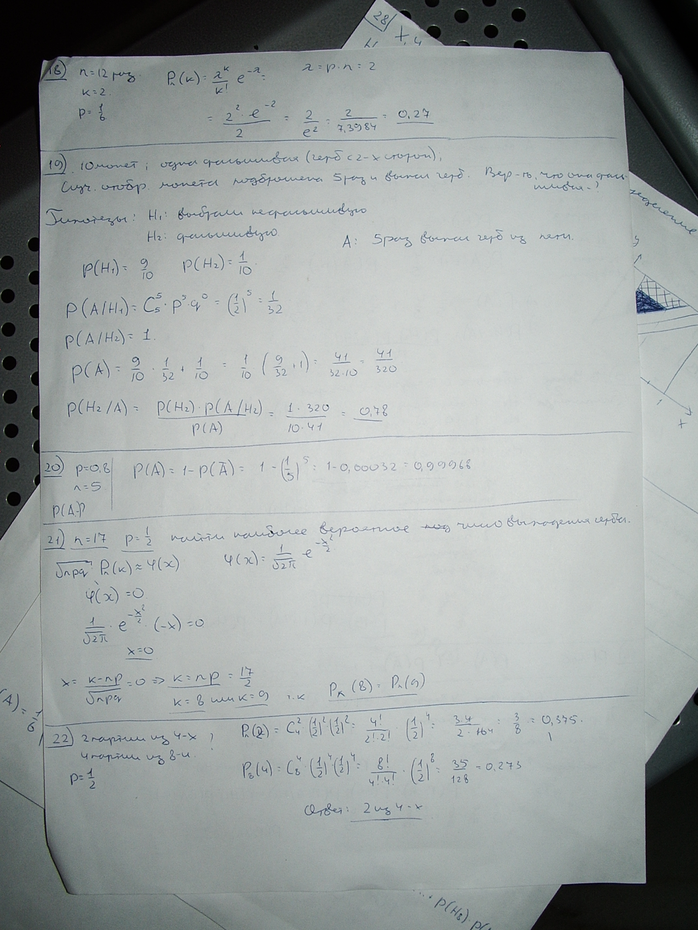 28)
18) n=12 раз. Pn(k) = λ^k/k! e^-λ = λ = p·n = 2
k=2.
p=1/6 = 2^2 · e^-2 / 2 = 2/e^2 = 2/7,3984 = 0,27
19) 10 монет, одна фальшивая (герб с 2-х сторон),
Случ. отобр. монета подброшена 5 раз и выпал герб. Вер-ть, что она фаль-
шивая?
Гипотезы: H1: выбрали нефальшивую
H2: фальшивую. A: 5 раз выпал герб из пяти.
P(H1) = 9/10 P(H2) = 1/10
P(A/H1) = C5^5 · p^5 · q^0 = (1/2)^5 = 1/32
P(A/H2) = 1.
P(A) = 9/10 · 1/32 + 1/10 = 1/10 (9/32 + 1) = 41/32·10 = 41/320
P(H2/A) = P(H2)·P(A/H2) / P(A) = 1·320 / 10·41 = 0,78
20) p=0,8 P(A) = 1-P(Ā) = 1-(1/5)^5 = 1-0,00032 = 0,99968
n=5
P(A)-?
21) n=17 p=1/2 найти наиболее вероятное число выпадения герба.
√npq Pn(k) ≈ φ(x) φ(x) = 1/√2π e^-x²/2
φ'(x) = 0
1/√2π · e^-x²/2 · (-x) = 0
x=0
x = k-np/√npq = 0 => k = np = 17/2
k=8 или k=9 т.к Pn(8) = Pn(9)
22) 2 партии из 4-х ? Pn(2) = C4^2 (1/2)^2 (1/2)^2 = 4!/2!·2! · (1/2)^4 = 3·4/2· = 3/8 = 0,375.
4 партии из 8-и
p=1/2 P8(4) = C8^4 (1/2)^4 (1/2)^4 = 8!/4!4! · (1/2)^8 = 35/128 = 0,273
Ответ: 2 из 4-х